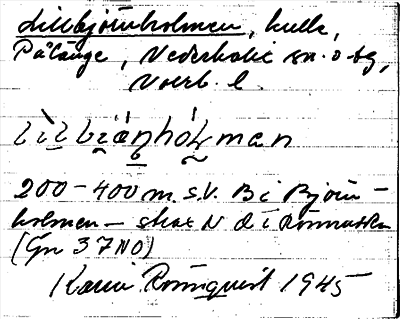 Lillbjörnholmen, kulle,
Pålänge, Nederkalix sn. o tg,
Norrb. l.
lìl bi̯än̥hól̥man
200–400 m. s.V. B i Björn-
holmen – strax N d i Rönnudden
(Gn 37 NO)
Karin Rönnquist 1945